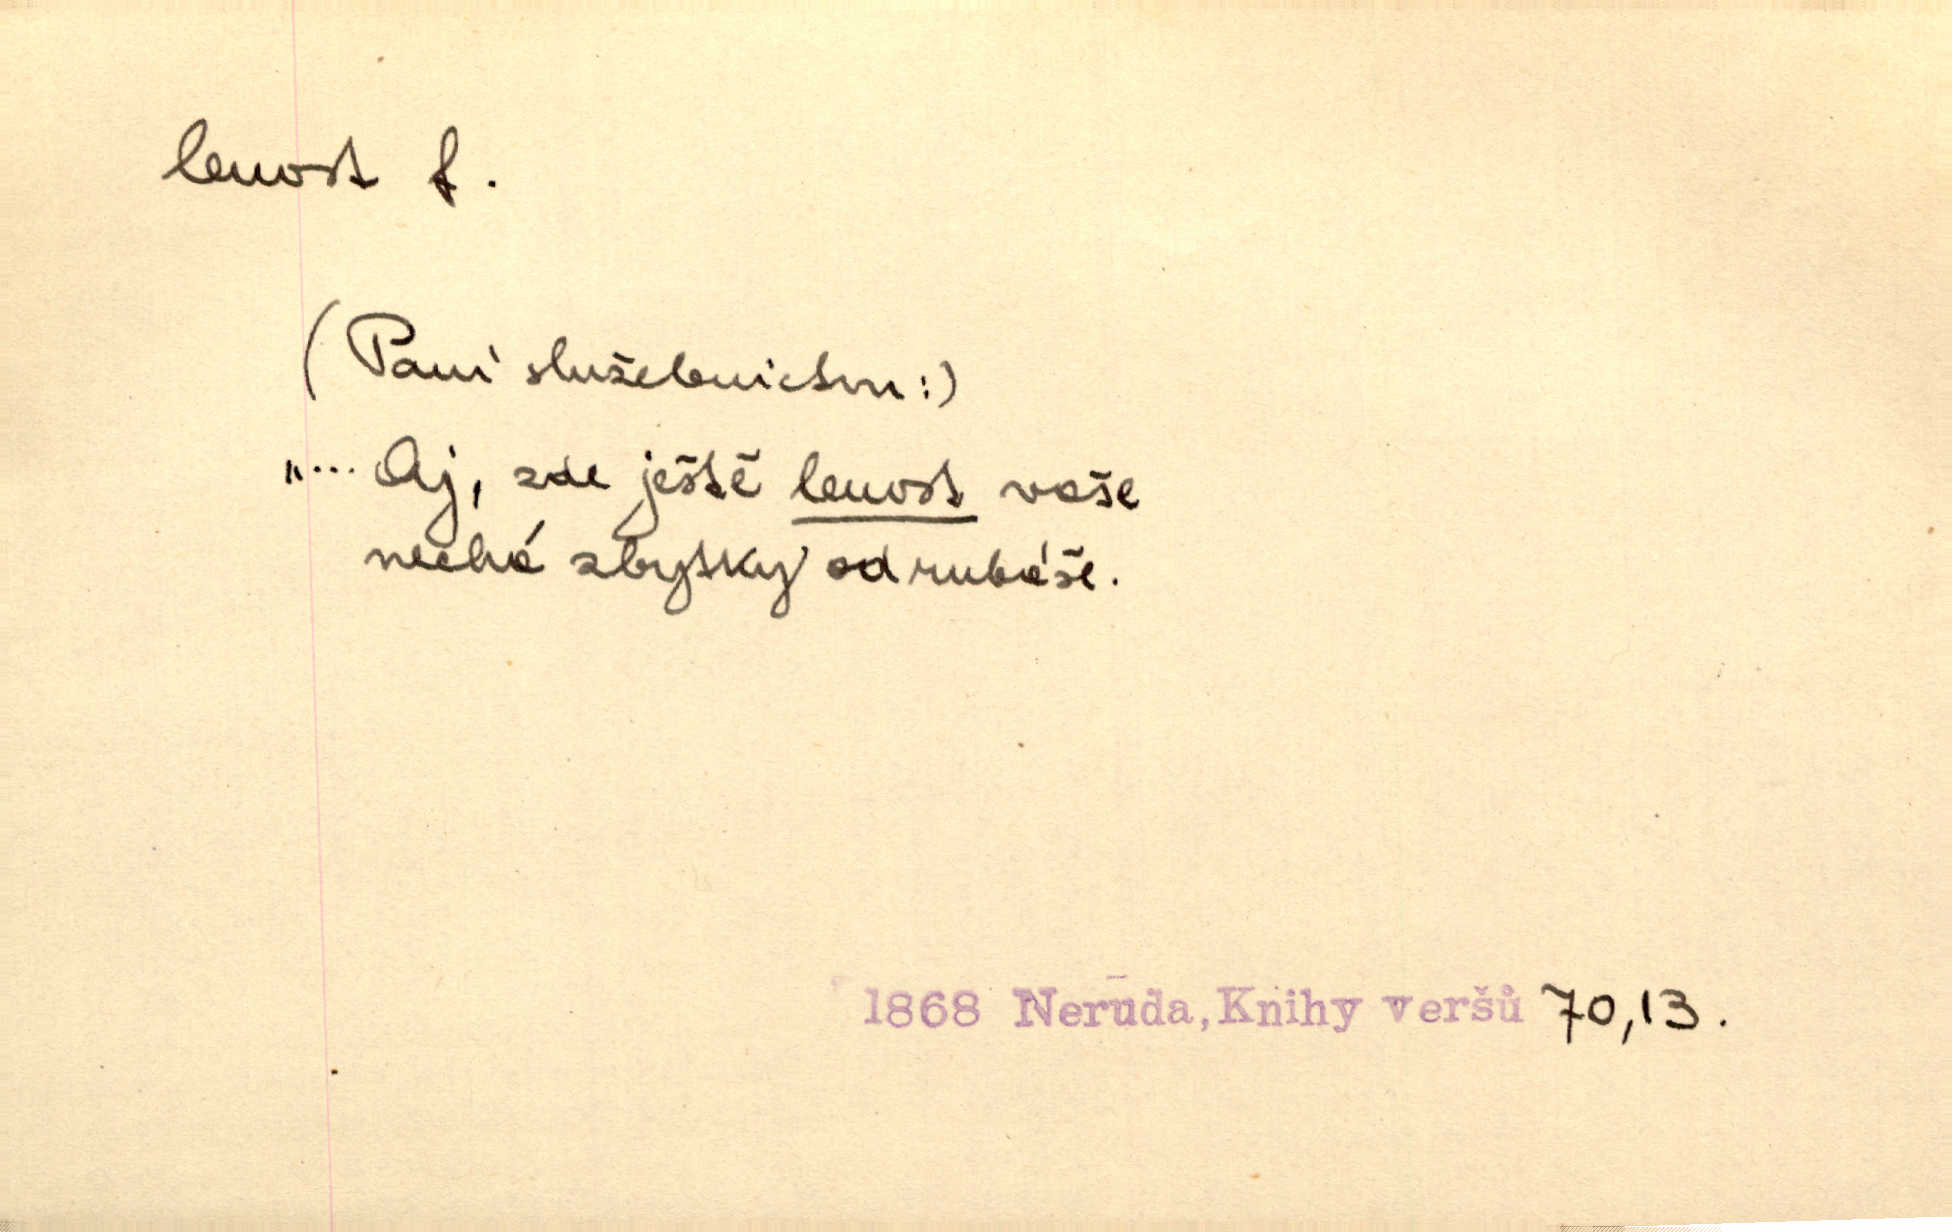 lenost f.
(Paní služebnictvu:)
„... Aj, zde ještě lenost vaše
nechá zbytky od rubáše.
1868 Neruda, Knihy veršů 70,13.